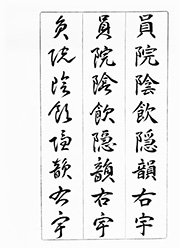 員院陰飲隱韻右宇
員院陰飲隱韻右宇
員院陰飲隱韻右宇